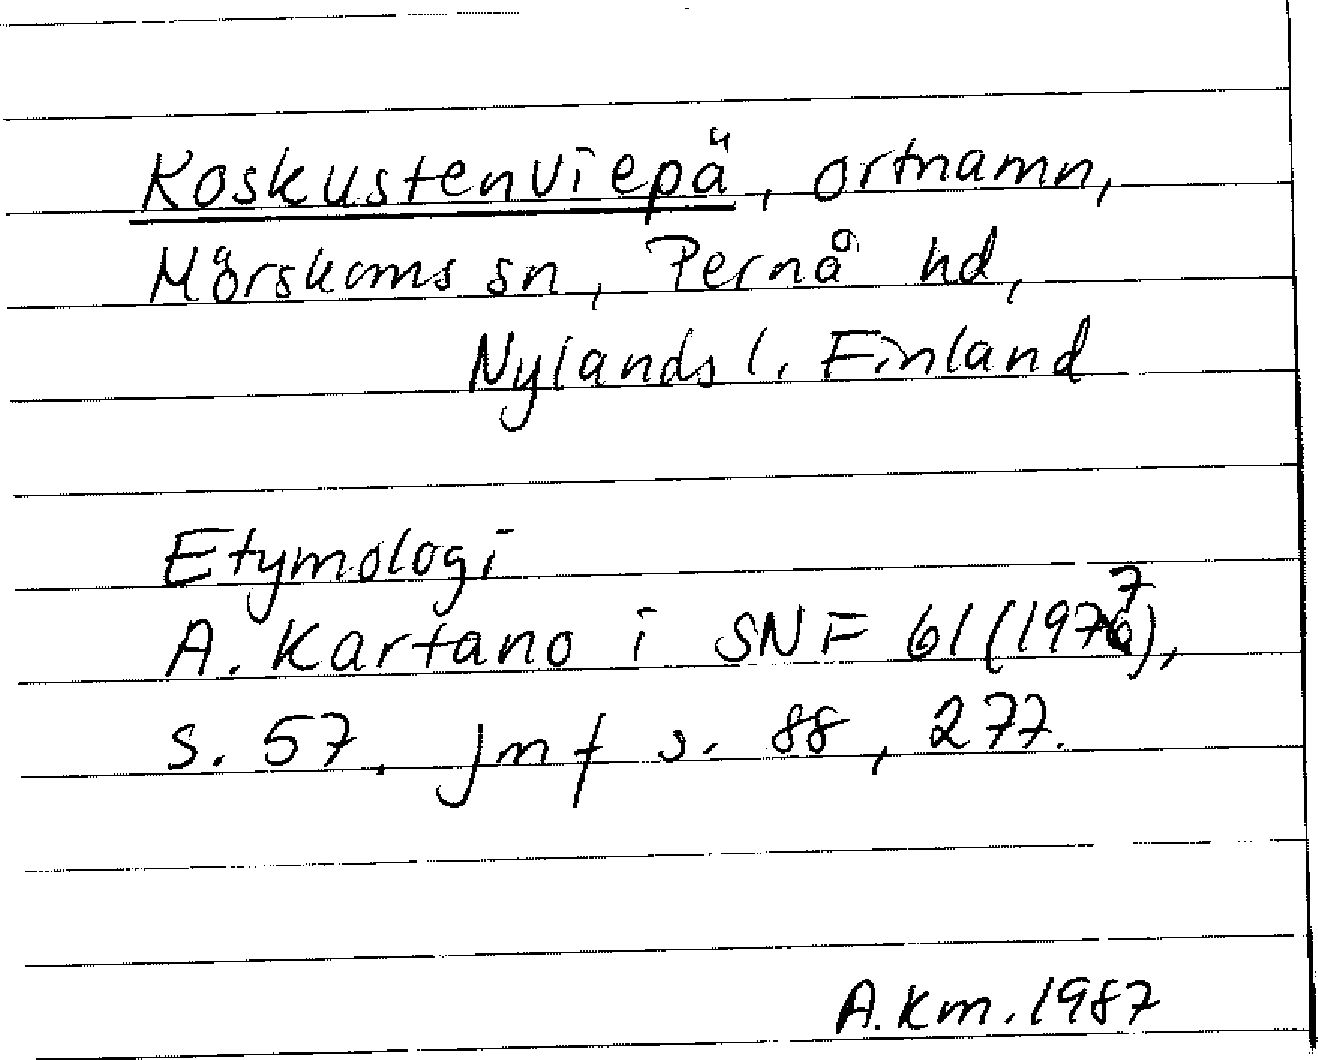 Koskustenviepä, ortnamn,
Mörskoms sn, Pernå hd,
Nylands l. Finland
Etymologi
A. Kartano i SNF 61 (1977),
s. 57. Jmf s. 88, 277.
A.Km. 1987